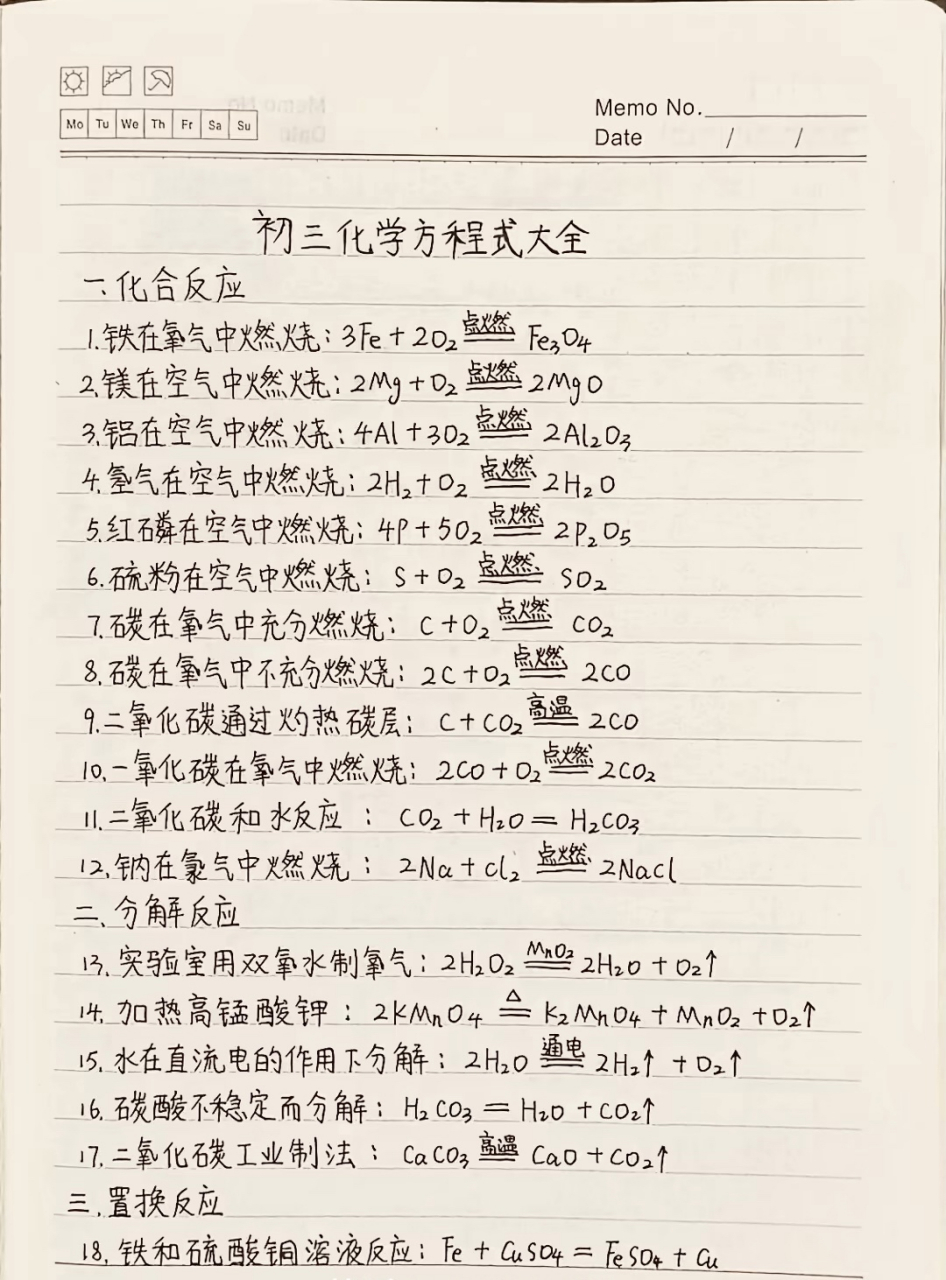 Mo Tu We Th Fr Sa Su
Memo No.
Date / /
初三化学方程式大全
一、化合反应
1.铁在氧气中燃烧：3Fe + 2O₂ 点燃 Fe₃O₄
2.镁在空气中燃烧：2Mg + O₂ 点燃 2MgO
3.铝在空气中燃烧：4Al + 3O₂ 点燃 2Al₂O₃
4.氢气在空气中燃烧：2H₂ + O₂ 点燃 2H₂O
5.红磷在空气中燃烧：4P + 5O₂ 点燃 2P₂O₅
6.硫粉在空气中燃烧：S + O₂ 点燃 SO₂
7.碳在氧气中充分燃烧：C + O₂ 点燃 CO₂
8.碳在氧气中不充分燃烧：2C + O₂ 点燃 2CO
9.二氧化碳通过灼热碳层：C + CO₂ 高温 2CO
10.一氧化碳在氧气中燃烧：2CO + O₂ 点燃 2CO₂
11.二氧化碳和水反应：CO₂ + H₂O = H₂CO₃
12.钠在氯气中燃烧：2Na + Cl₂ 点燃 2NaCl
二、分解反应
13.实验室用双氧水制氧气：2H₂O₂ MnO₂ 2H₂O + O₂↑
14.加热高锰酸钾：2KMnO₄ △ K₂MnO₄ + MnO₂ + O₂↑
15.水在直流电的作用下分解：2H₂O 通电 2H₂↑ + O₂↑
16.碳酸不稳定而分解：H₂CO₃ = H₂O + CO₂↑
17.二氧化碳工业制法：CaCO₃ 高温 CaO + CO₂↑
三、置换反应
18.铁和硫酸铜溶液反应：Fe + CuSO₄ = FeSO₄ + Cu